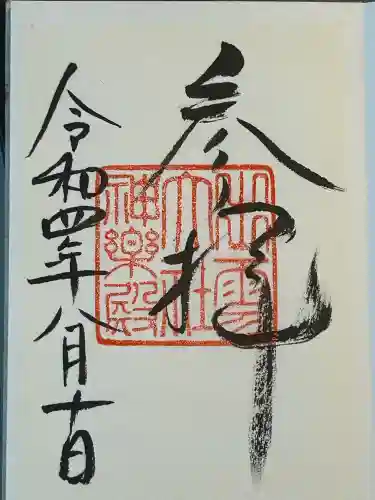 参拝
出雲
大社
神樂殿
令和四年八月十日